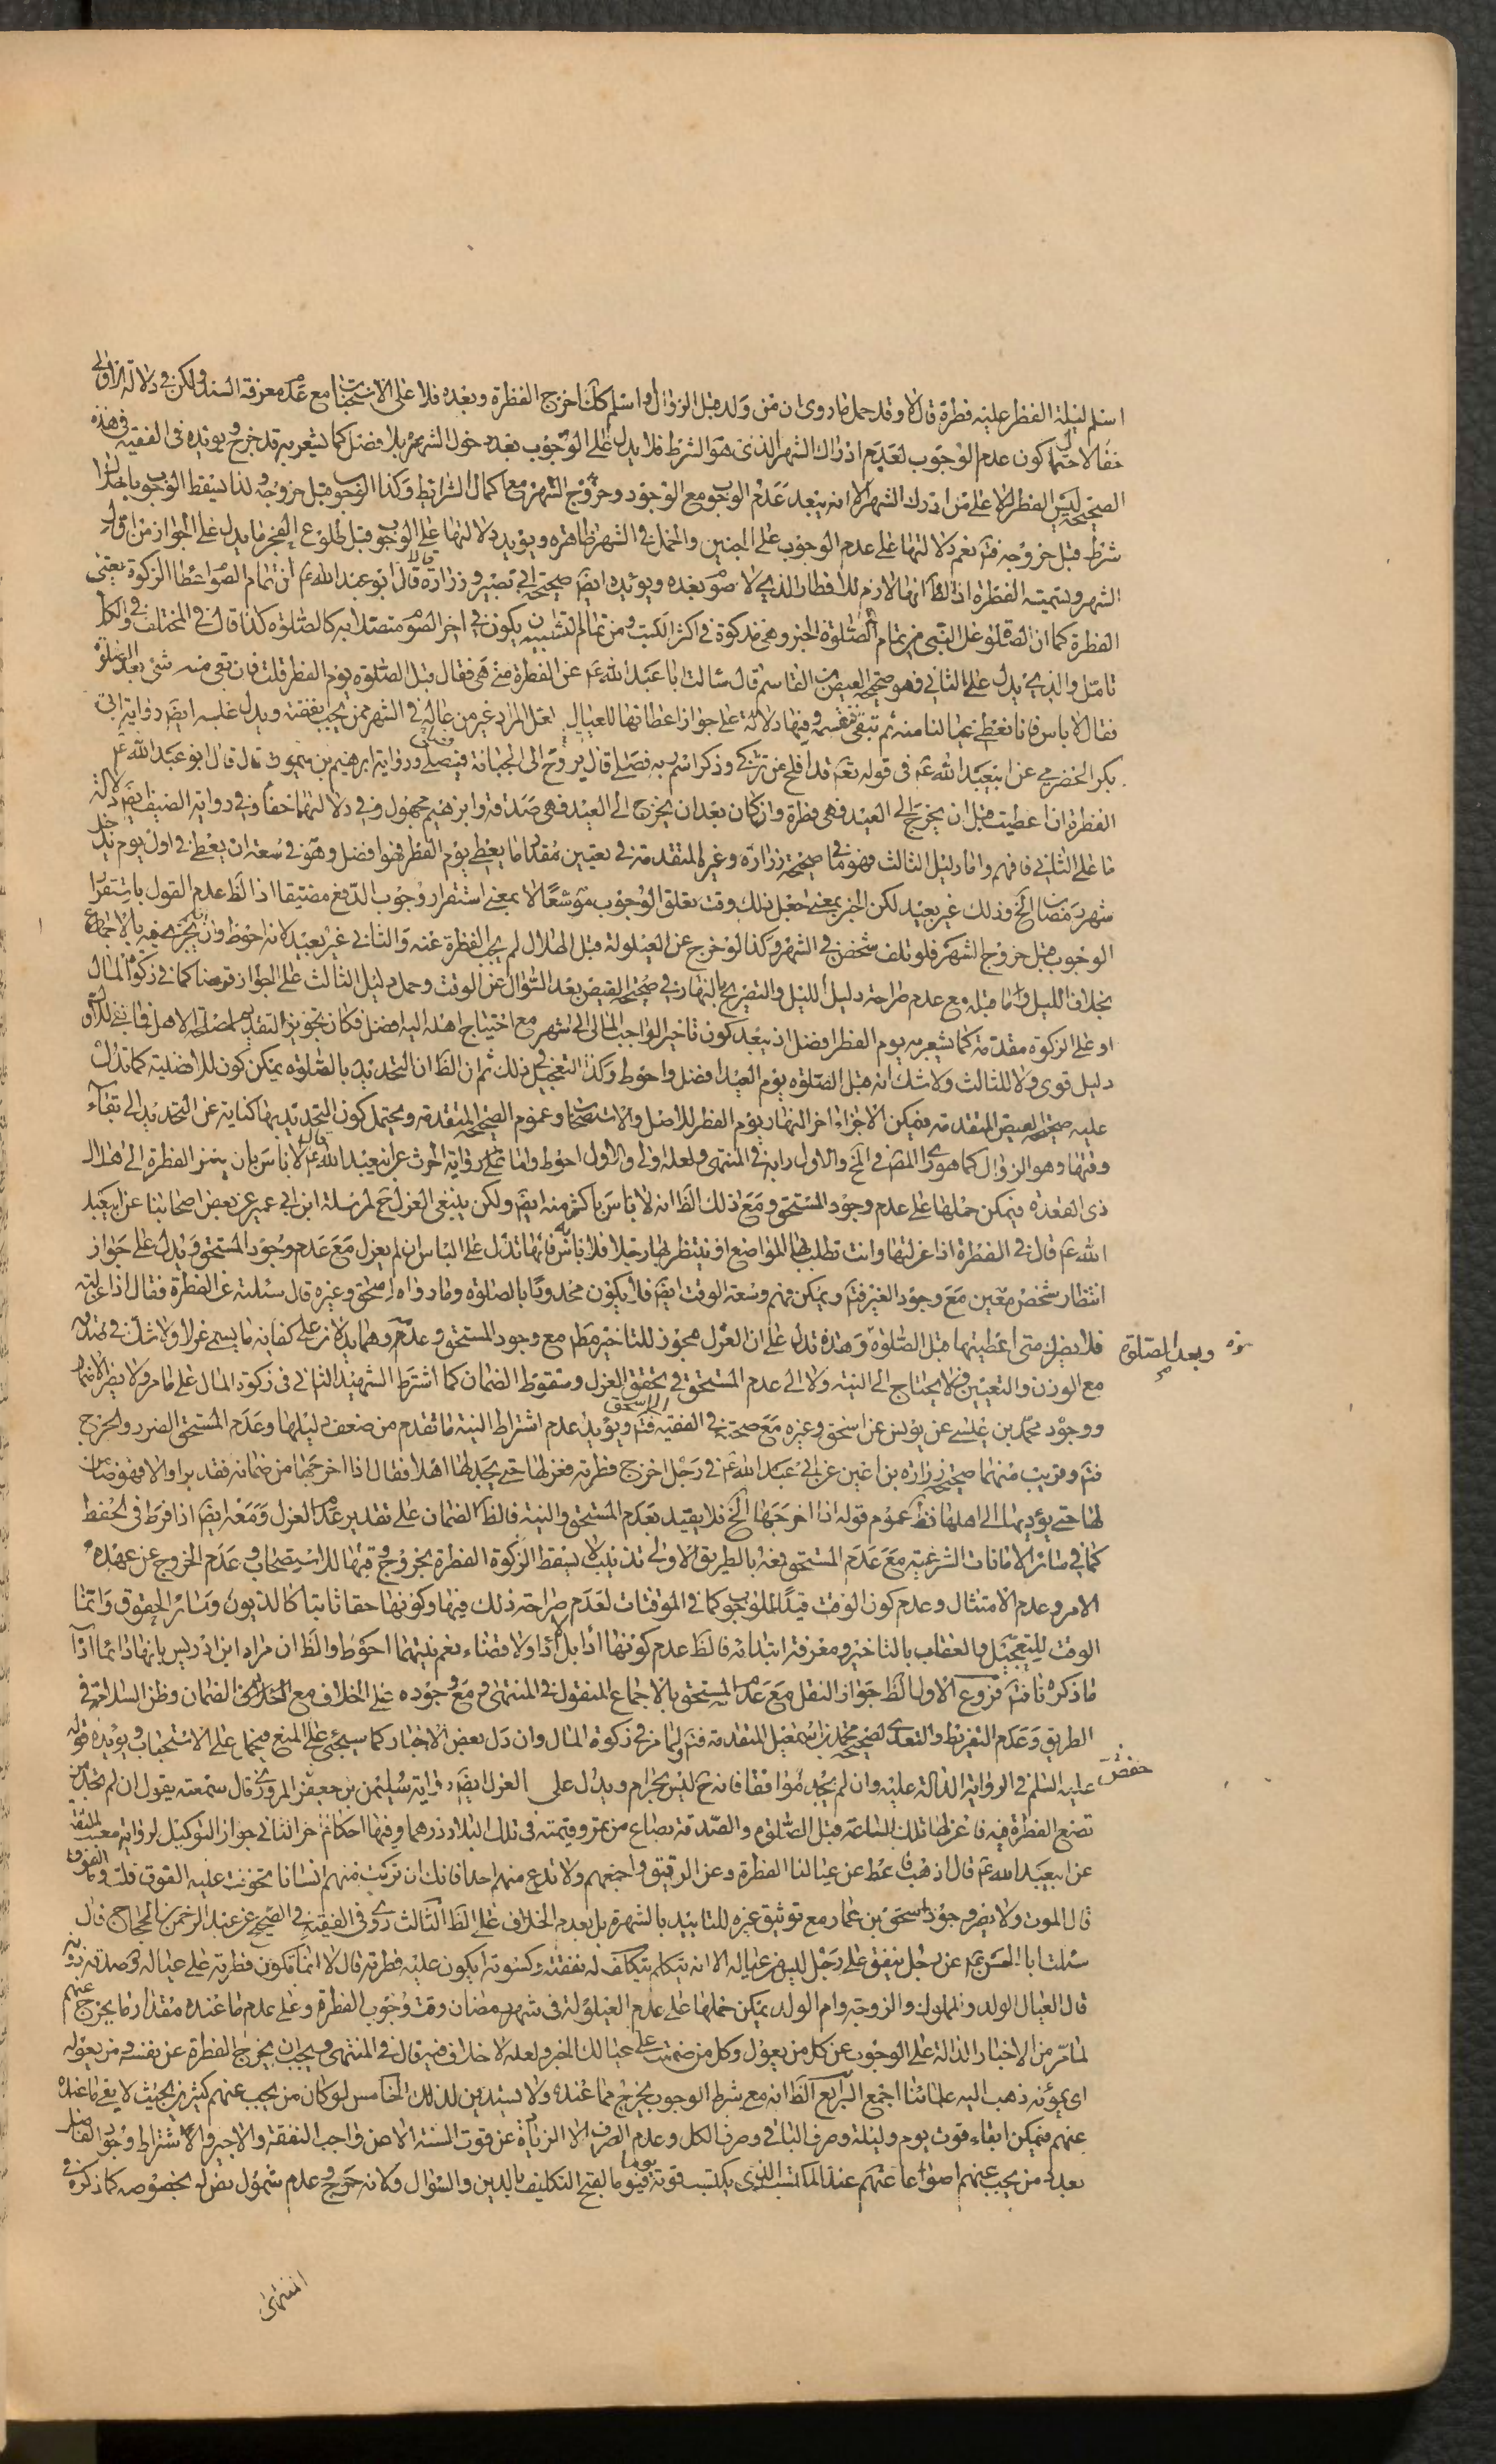 اسلم ليلة الفطر عليه فطرة قال لا وقد حمل ما روى ان من ولد قبل الزوال او اسلم كك اخرج الفطرة وبعده فلا على الاستحباب مع عدم معرفة السند ولكن في دلالة الاولى
خفا لاحتمال كون عدم الوجوب لعدم ادراك الشهر الذى هو الشرط فلا يدل على الوجوب بعد دخول الشهر بلا فصل كما يشعر به قد خرج ويؤيده في الفقيه في هذه
الصحيحة ليس الفطرة الا على من ادرك الشهر الا انه يبعد عدم الوجوب مع الوجود وخروج الشهر مع كمال الشرائط وكذا الوجوب قبل خروجه ولذا يسقط الوجوب باختلال
شرط قبل خروجه فتم نعم دلالتها على عدم الوجوب على الجنين والحمل في الشهر ظاهرة ويؤيد دلالتها على الوجوب قبل طلوع الفجر ما يدل على الجواز من اول
الشهر وتسمية الفطرة اذ الظ انها لازم للافطار الذي لا صوم بعده ويؤيده ايضا صحيحة ابي بصير وزرارة قالا قال ابو عبد الله ع ان من تمام الصوم اعطاء الزكوة يعنى
الفطرة كما ان الصلوة على النبى من تمام الصلوة الخبر وهى مذكورة في اكثر الكتب ومن تمام التشبيه ان يكون في اخر الصوم متصلا به كالصلوة كذا قال في المختلف وفي الكل
تامل والذى يدل على الثانى فهو صحيحة العيص بن القاسم قال سالت ابا عبد الله ع عن الفطرة متى هى فقال قبل الصلوة يوم الفطر قلت فان بقى منه شئ بعد الصلوة
فقال لا باس فانا نعطى عيالنا منه ثم تبقى فنقسمه وفيها دلالة على جواز اعطائها للعيال لعل المراد غير من عاله في الشهر ممن يجب نفقته ويدل عليه ايضا رواية ابى
بكر الحضرمى عن ابى عبد الله ع في قوله تع قد افلح من تزكى وذكر اسم ربه فصلى قال يروح الى الجبانة فيصلى ورواية ابرهيم بن ميمون قال قال ابو عبد الله ع
الفطرة ان اعطيت قبل ان يخرج الى العيد فهى فطرة وان كان بعد ان يخرج الى العيد فهى صدقة وابرهيم مجهول وفي دلالتهما خفا وفي رواية الضيف ايضا دلالة
ما على الثانى فافهم واما دليل الثالث فهو ما في صحيحة زرارة وغيره المتقدمة في تعيين مقدار ما يعطى يوم الفطر فهو افضل وهو في سعة ان يعطى في اول يوم يدخل
شهر رمضان الخ وذلك غير بعيد لكن الخبر بمعنى جعل ذلك وقت تعلق الوجوب موسعا لا بمعنى استقرار وجوب الدفع مضيقا اذ الظ عدم القول باستقرار
الوجوب قبل خروج الشهر فلو تلف شخص في الشهر وكذا لو خرج عن العيلولة قبل الهلال لم يجب الفطرة عنه والثانى غير بعيد لانه احوط وان يجزى فيه بالاجماع
بخلاف الليل وما قبله مع عدم صراحة دليل الليل والتصريح بالنهار في صحيحة العيص بعد السؤال عن الوقت وحمل دليل الثالث على الجواز قرضا كما في زكوة المال
او على الزكوة مقدمة كما يشعر به يوم الفطر افضل اذ يبعد كون تاخير الواجب المالى الى شهر مع احتياج اهله اليه افضل فكان تجويز التقديم لمصلحة الاهل فما في للاول
دليل قوى ولا للثالث ولا شك انه قبل الصلوة يوم العيد افضل واحوط وكذا التعجيل في ذلك ثم ان الظ ان التحديد بالصلوة يمكن كون للافضلية كما تدل
عليه صحيحة العيص المتقدمة فيمكن الاجزاء اخر النهار يوم الفطر للاصل والاستصحاب وعموم الصحيحة المتقدمة ويحتمل كون التحديد بها كناية عن التحديد الى بقاء
وقتها وهو الزوال كما هو راى المص في الخ والاول رايه في المنتهى ولعله اولى والاول احوط واما ما في رواية الحرث عن ابى عبد الله ع قال لا باس بان يؤخر الفطرة الى هلال
ذى القعدة فيمكن حملها على عدم وجود المستحق ومع ذلك الظ انه لا باس باكثر منه ايضا ولكن ينبغى العزل ح لمرسلة ابن ابى عمير عن بعض اصحابنا عن ابى عبد
الله ع قال في الفطرة اذا عزلتها وانت تطلب بها المواضع او تنتظر بها رجلا فلا باس به فانها تدل على الباس ان لم يعزل مع عدم وجود المستحق ويدل على جواز
انتظار شخص معين مع وجود الغير فتم ويمكن فهم وسعة الوقت ايضا فلا يكون محدودا بالصلوة وما رواه اسحق وغيره قال سئلته عن الفطرة فقال اذا عزلته
فلا يضرك متى اعطيتها قبل الصلوة وهذه تدل على ان العزل مجوز للتاخير مطم مع وجود المستحق وعدمه وهما يدلان على كفاية ما يسمى عزلا ولا شك في تحققه
نره وبعد الصلوة صح
مع الوزن والتعيين فلا يحتاج الى النية ولا الى عدم المستحق في تحقق العزل وسقوط الضمان كما اشترط الشهيد الثانى في زكوة المال على ما مر ولا يضر الاضمار
ووجود محمد بن عيسى عن يونس عن اسحق وغيره مع صحته في الفقيه الى اسحق فتم ويؤيد عدم اشتراط النية ما تقدم من ضعف دليلها وعدم المستحق الضرر والحرج
فتم وقريب منهما صحيحة زرارة بن اعين عن ابى عبد الله ع في رجل اخرج فطرته فعزلها حتى يجد لها اهلا فقال اذا اخرجها من ضمانه فقد برا والا فهو ضامن
لها حتى يؤديها الى اهلها فظ عموم قوله اذا اخرجها الخ فلا يقيد بعدم المستحق والنية فالظ الضمان على تقدير عدم العزل ومعه ايضا اذا فرط في الحفظ
كما في سائر الامانات الشرعية مع عدم المستحق بعد بالطريق الاولى تذنيب لا يسقط الزكوة الفطرة بخروج وقتها للاستصحاب وعدم الخروج عن عهدة
الامر وعدم الامتثال وعدم كون الوقت قيدا للوجوب كما في الموقتات لعدم صراحة ذلك فيها وكونها حقا ثابتا كالديون وسائر الحقوق وانما
الوقت للتعجيل والعقاب بالتاخير ومعرفة ابتدائه فالظ عدم كونها اداء بل لا اداء ولا قضاء نعم نيتهما احوط والظ ان مراد ابن ادريس بانها دائما اداء
ما ذكرناه فتم فروع الاول الظ جواز النقل مع عدم المستحق بالاجماع المنقول في المنتهى ومع وجوده على الخلاف مع الضمان وظن السلامة في
الطريق وعدم التفريط والتعدى لصحيحة محمد بن اسمعيل المتقدمة فتم ولما مر في زكوة المال وان دل بعض الاخبار كما سيجئ على المنع فيحمل على الاستحباب ويؤيده قوله
عليه السلم في الرواية الدالة عليه وان لم يجد موافقا فانه ح ليس بحرام ويدل على العزل ايضا رواية سليمن بن جعفر المروزى قال سمعته يقول ان لم تجد من
حفص
تضع الفطرة فيه فاعزلها تلك الساعة قبل الصلوة والصدقة بصاع من تمر وقيمته في تلك البلاد درهما وفيها احكام اخر الثانى جواز التوكيل لرواية معتب المتقدمة
عن ابى عبد الله ع قال اذهب فاعط عن عيالنا الفطرة وعن الرقيق واجمعهم ولا تدع منهم احدا فانك ان تركت منهم انسانا تخوفت عليه الفوت قلت وما الفوت
قال الموت ولا يضر وجود اسحق بن عمار مع توثيق غيره للتاييد بالشهرة بل بعدم الخلاف على الظ الثالث روى في الفقيه في الصحيح عن عبد الرحمن بن الحجاج قال
سئلت ابا الحسن ع عن رجل ينفق على رجل ليس من عياله الا انه يتكلف له نفقته وكسوته ايكون عليه فطرته قال لا انما يكون فطرته على عياله صدقة دونه
قال العيال الولد والمملوك والزوجة وام الولد يمكن حملها على عدم العيلولة في شهر رمضان وقت وجوب الفطرة وعلى عدم ما عنده مقدار ما يخرج عنهم
لما مر من الاخبار الدالة على الوجوب عن كل من يعول وكل من ضممت على عيالك الخبر ولعله لا خلاف فيه قال في المنتهى ويجب ان يخرج الفطرة عن نفسه ومن يعوله
اى يمونه ذهب اليه علمائنا اجمع الرابع الظ انه مع شرط الوجوب يخرج مما عنده ولا يستدين لذلك الخامس لو كان من يجب عنهم كثيرين بحيث لا يفى ما عنده
عنهم فيمكن ابقاء قوت يوم وليلة وصرف الباقى وصرف الكل وعدم الصرف الا الزيادة عن قوت السنة الا من واجب النفقة والاخير والاشتراط وجود الفاضل
بعدد من يجب عنهم اصواعا عنهم عند المكتسب الذى يكتسب قوته يوما فيوما لقبح التكليف بالدين والسؤال وكانه حرج وعدم شمول نص له بخصوصه كما ذكره في
المنتهى